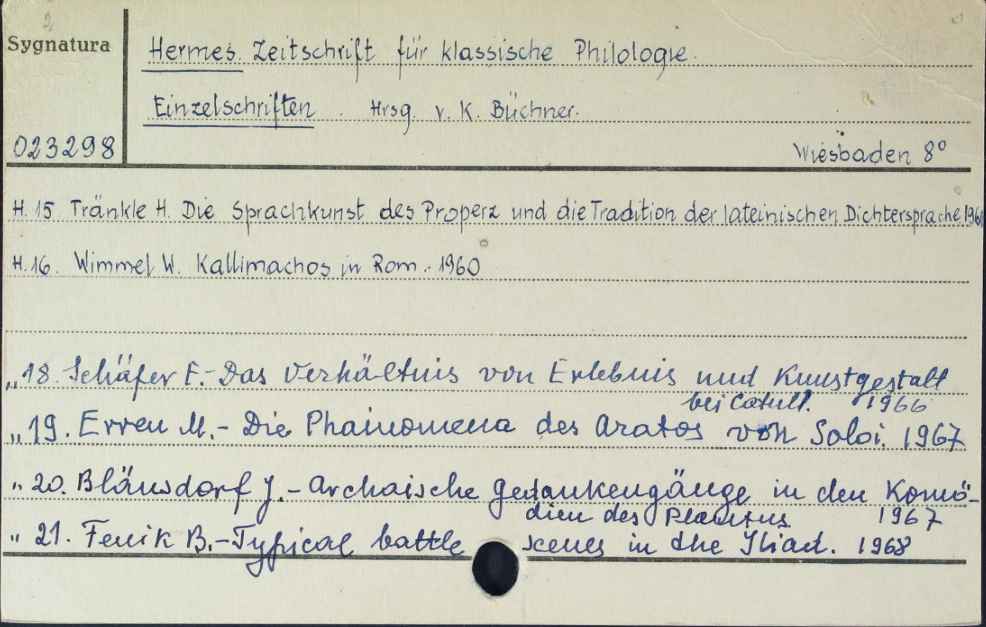 Sygnatura
Hermes. Zeitschrift für klassische Philologie.
Einzelschriften. Hrsg. v. K. Büchner.
023298
Wiesbaden 8°
H.15 Tränkle H. Die Sprachkunst des Properz und die Tradition der lateinischen Dichtersprache
H.16. Wimmel W. Kallimachos in Rom.. 1960
„ 18. Schäfer E.- Das Verhältnis von Erlebnis und Kunstgestalt
bei Catull. 1966
„ 19. Erren M.- Die Phainomena des Aratos von Soloi. 1967
„ 20. Blänsdorf J.- Archaische Gedankengänge in den Komö-
dien des Plautus 1967
„ 21. Fenik B.- Typical battle scenes in the Iliad. 1968